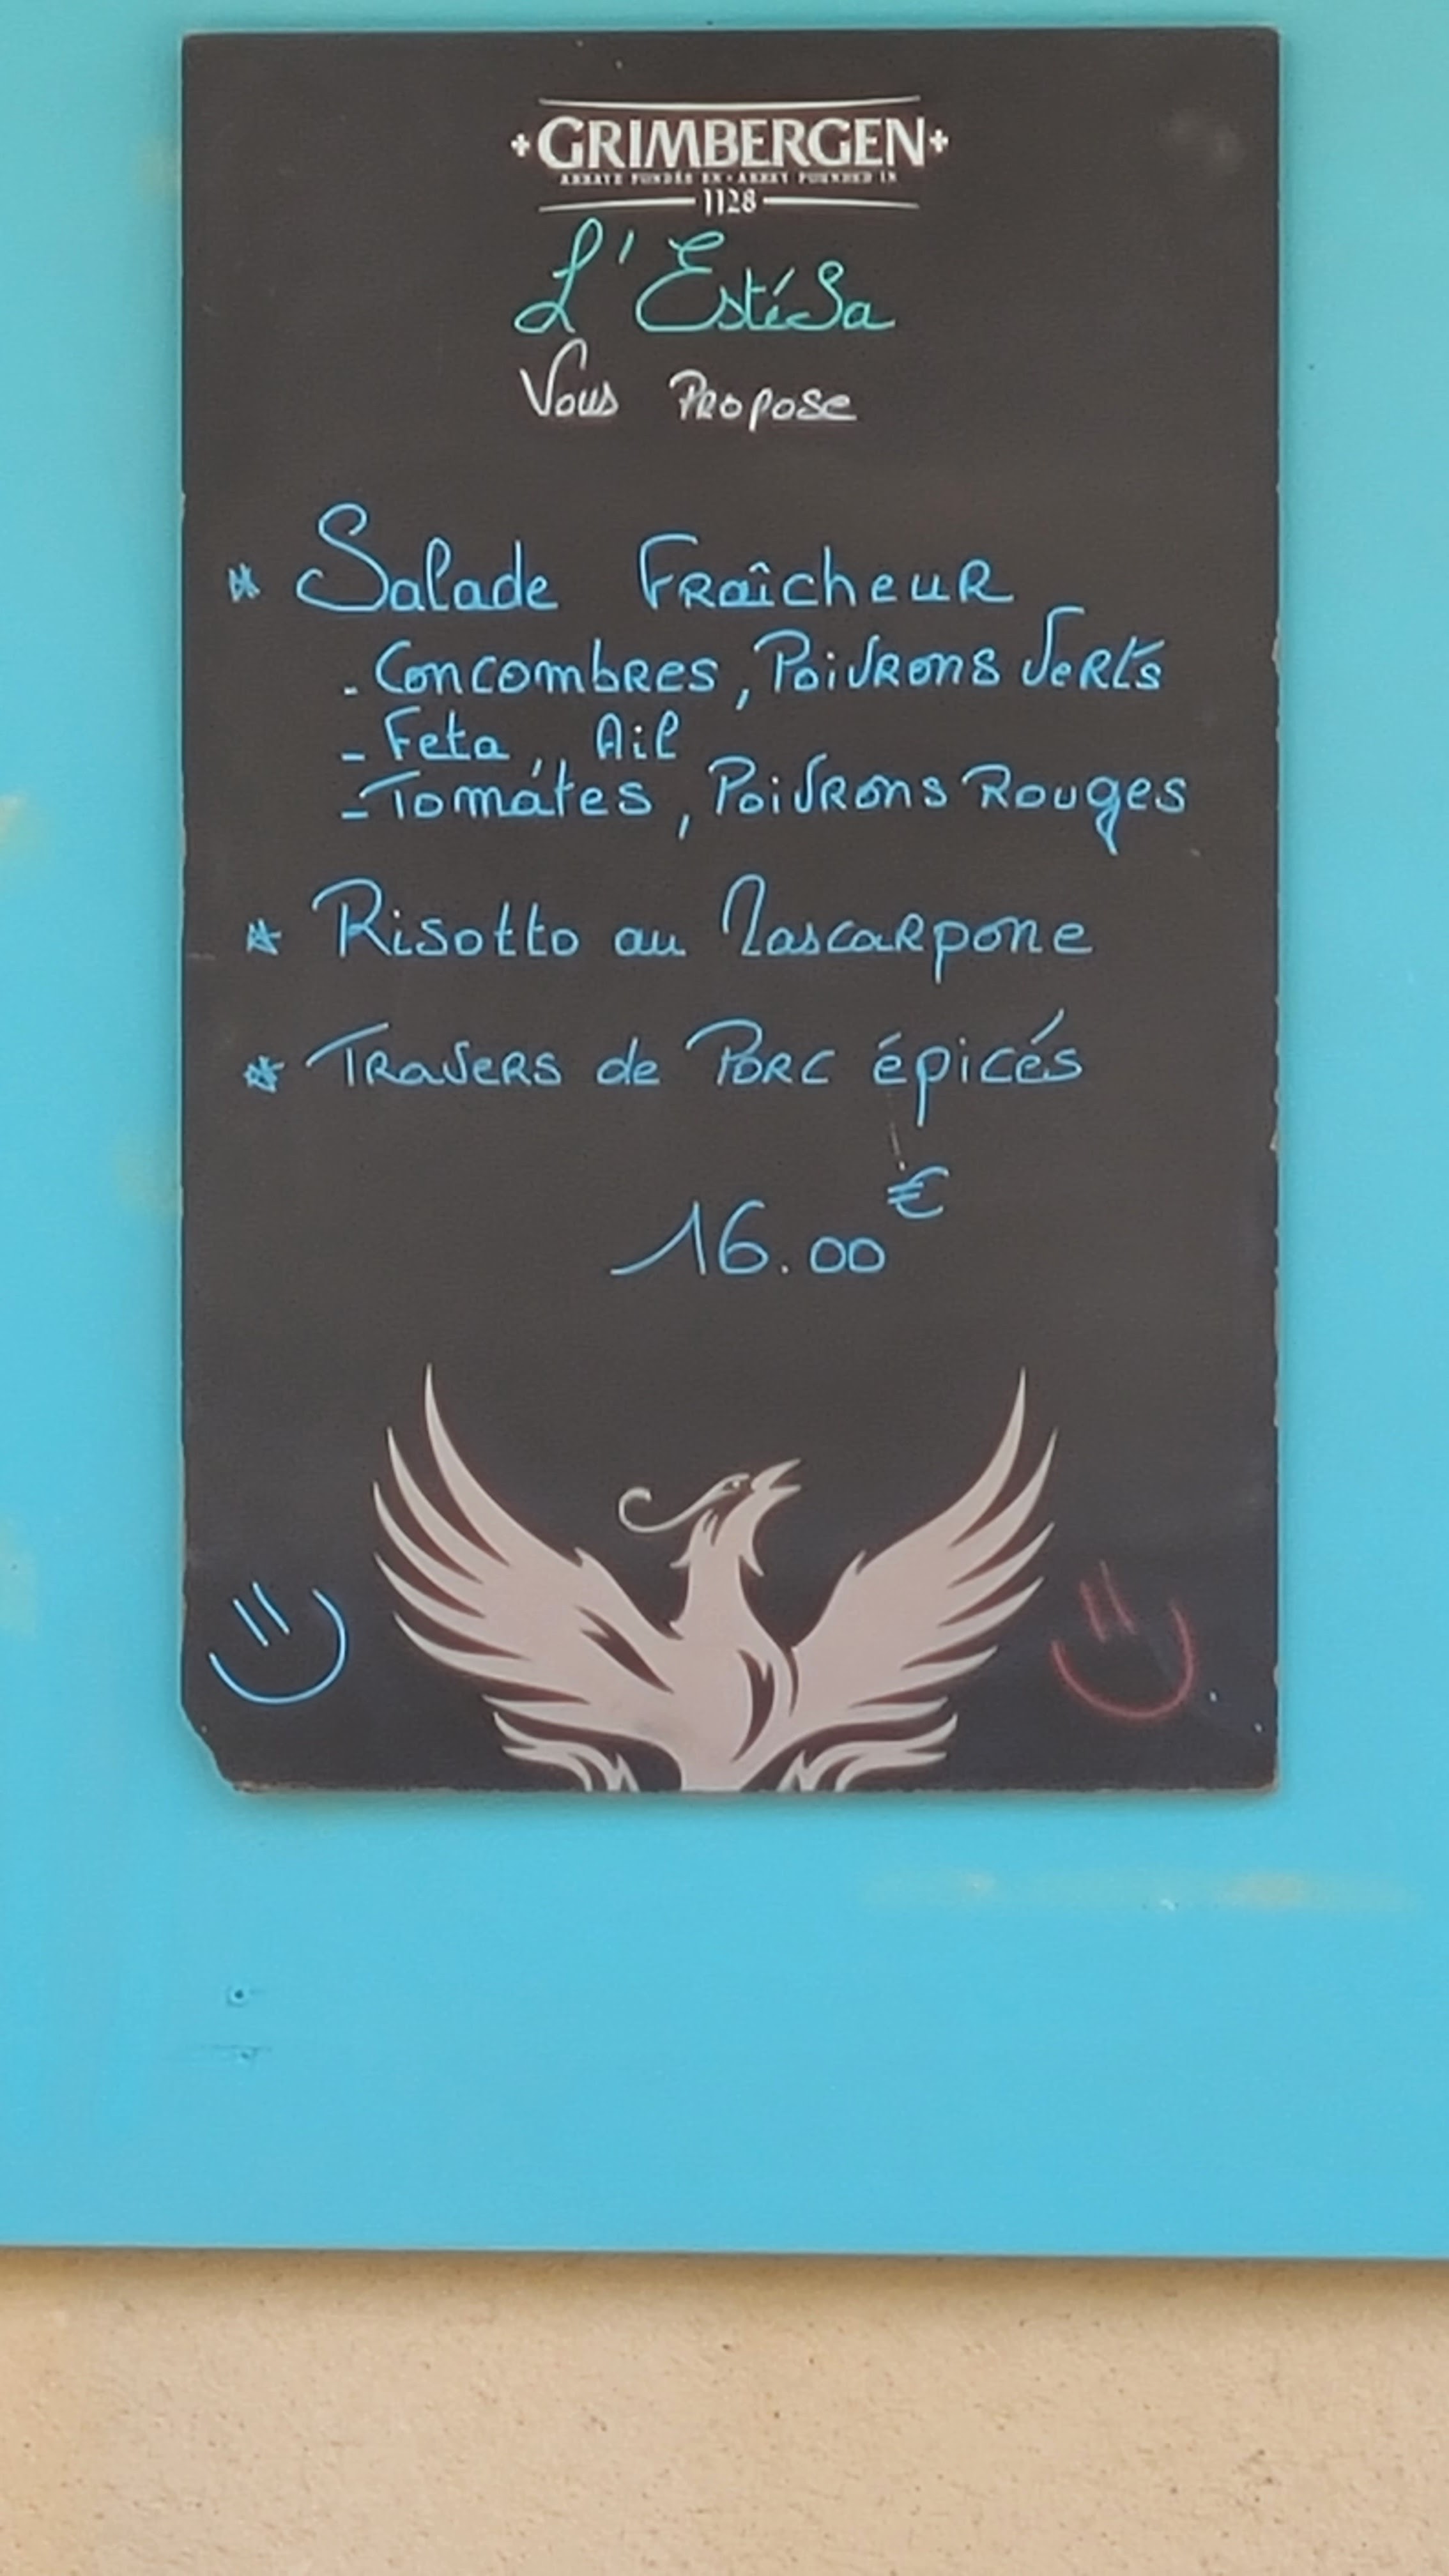 GRIMBERGEN
ABBAYE FONDÉE EN • ABBEY FOUNDED IN
1128
L'EstéSa
Vous Propose
* Salade Fraîcheur
- Concombres, Poivrons Verts
- Feta, Ail
- Tomates, Poivrons Rouges
* Risotto au Mascarpone
* Travers de Porc épicés
16.00€